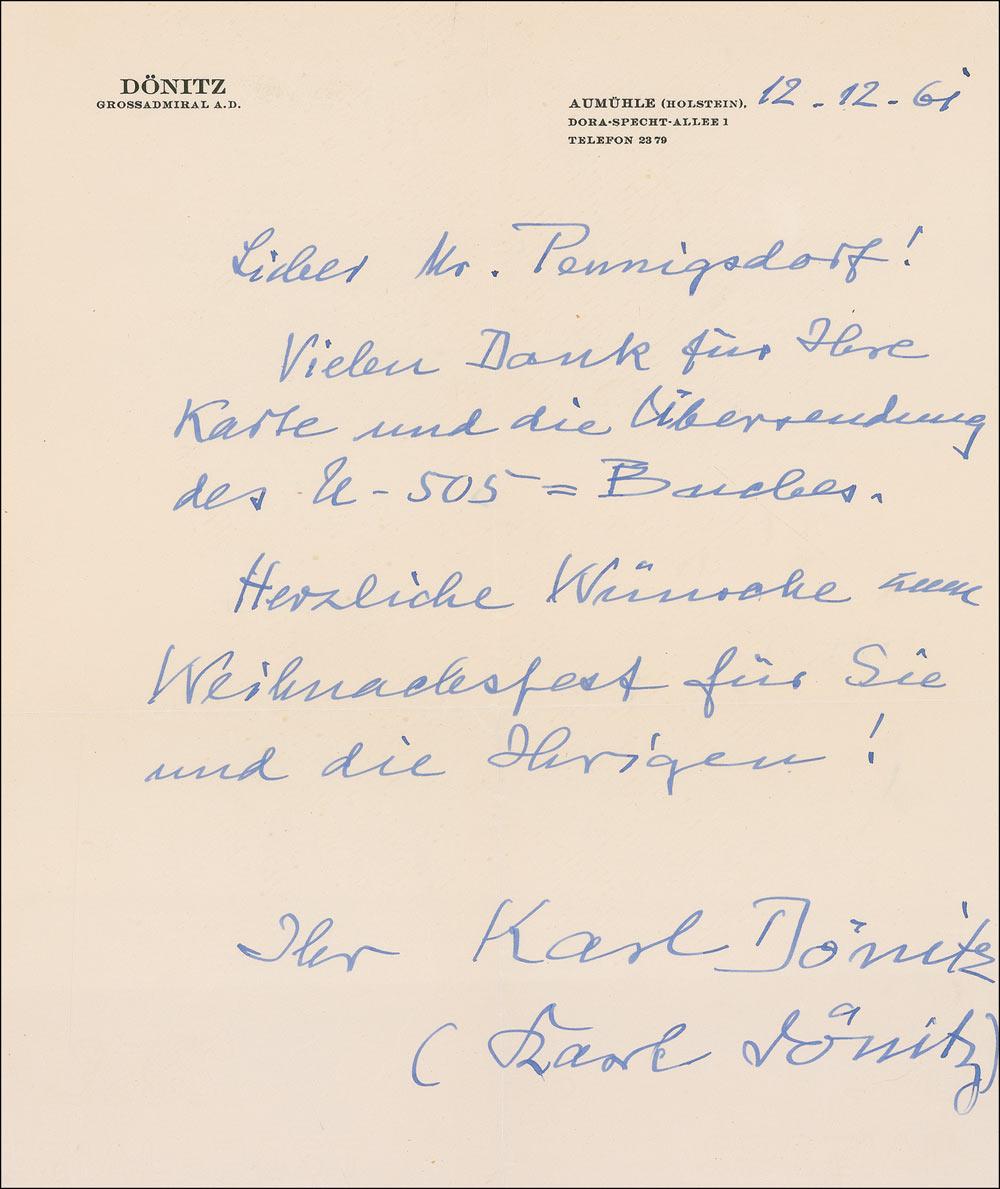 DÖNITZ
GROSSADMIRAL A.D.
AUMÜHLE (HOLSTEIN), 12.12.61
DORA-SPECHT-ALLEE 1
TELEFON 23 79
Lieber Mr. Pennigsdorf!
Vielen Dank für Ihre
Karte und die Übersendung
des U-505=Buches.
Herzliche Wünsche zum
Weihnachtsfest für Sie
und die Ihrigen!
Ihr Karl Dönitz
(Karl Dönitz)